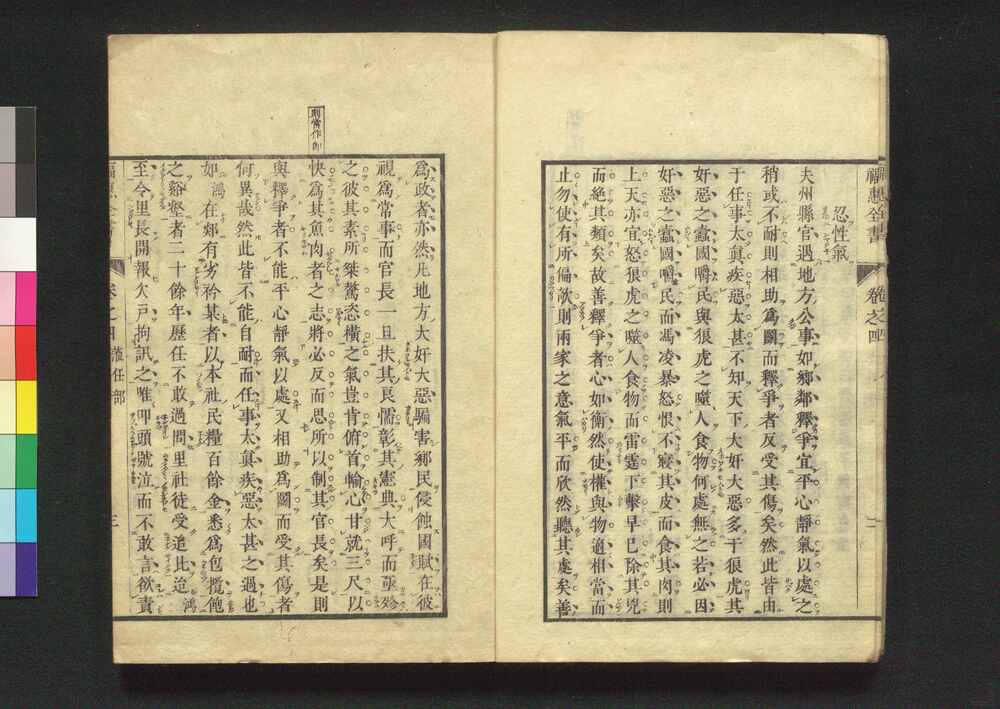 福惠全書 卷之四
忍性氣
夫州縣官遇地方公事如鄉鄰釋爭宜平心靜氣以處之
稍或不耐則相助爲鬬而釋爭者反受其傷矣然此皆由
于任事太眞疾惡太甚不知天下大奸大惡多于狼虎其
奸惡之蠧國嚼民與狼虎之噬人食物何處無之若必因
奸惡之蠧國嚼民而馮凌暴怒恨不寢其皮而食其肉則
上天亦宜怒狼虎之噬人食物而雷霆下擊早已除其兇
而絶其類矣故善釋爭者心如衡然使權與物適相當而
止勿使有所偏欹則兩家之意氣平而欣然聽其處矣善
爲政者亦然凡地方大奸大惡騙害鄕民侵蝕國賦在彼
視爲常事而官長一旦扶其良懦彰其憲典大呼而亟
之彼其素所桀驁恣橫之氣豈肯俯首輸心甘就三尺以
快爲其魚肉者之志將必反而思所以制其官長矣是則
與釋爭者不能平心靜氣以處又相助爲鬬而受其傷者
何異哉然此皆不能自耐而任事太眞疾惡太甚之過也
如鴻在郯有劣衿某者以本社民糧百餘金悉爲包攬飽
之谿壑者二十餘年歷任不敢過問里社徒受追比迨鴻
至令里長開報欠戸拘訊之唯叩頭號泣而不敢言欲責
卷之四 涖任部 三